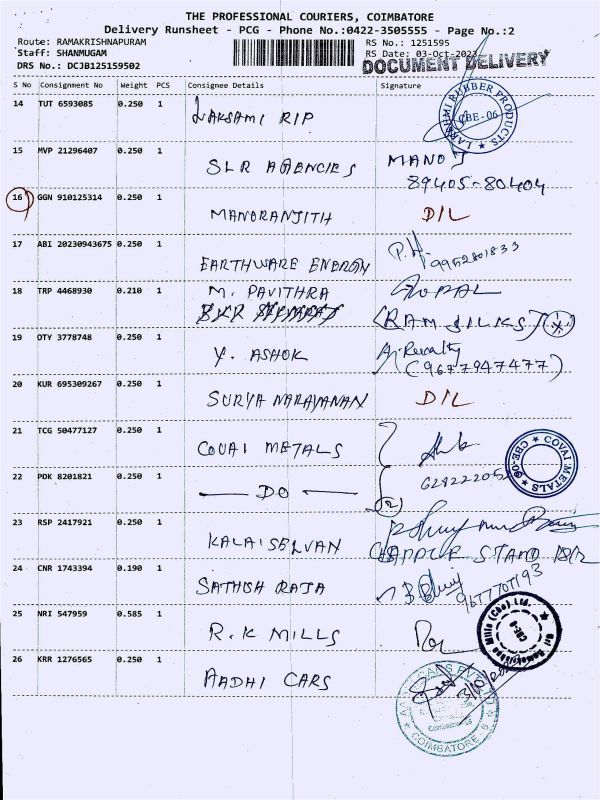 THE PROFESSIONAL COURIERS, COIMBATORE
Delivery Runsheet - PCG - Phone No.:0422-3505555 - Page No.:2
Route: RAMAKRISHNAPURAM RS No.: 1251595
Staff: SHANMUGAM RS Date: 03-Oct-2023
DRS No.: DCJB125159502 DOCUMENT DELIVERY
S No Consignment No Weight PCS Consignee Details Signature
14 TUT 6593085 0.250 1 LAKSHMI RIP
LAKSHMI RUBBER PRODUCTS CBE-06
15 MVP 21296407 0.250 1 SLR AGENCIES MANOJ
89405-80404
16 GGN 910125314 0.250 1 MANORANJITH D/L
17 ABI 20230943675 0.250 1 EARTHWARE ENERGY 9952801833
18 TRP 4468930 0.210 1 M. PAVITHRA GOPAL
(RAM SILKS)
19 OTY 3778748 0.250 1 Y. ASHOK
(9677947477)
20 KUR 695309267 0.250 1 SURYA NARAYANAN D/L
21 TCG 50477127 0.250 1 COVAI METALS
COVAI METALS
22 PDK 8201821 0.250 1 DO
2
23 RSP 2417921 0.250 1 KALAISELVAN
24 CNR 1743394 0.190 1 SATHISH RAJA
25 NRI 547959 0.585 1 R.K MILLS
Sri Ramakrishna Mills (Cbe) Ltd.
26 KRR 1276565 0.250 1 AADHI CARS
COIMBATORE